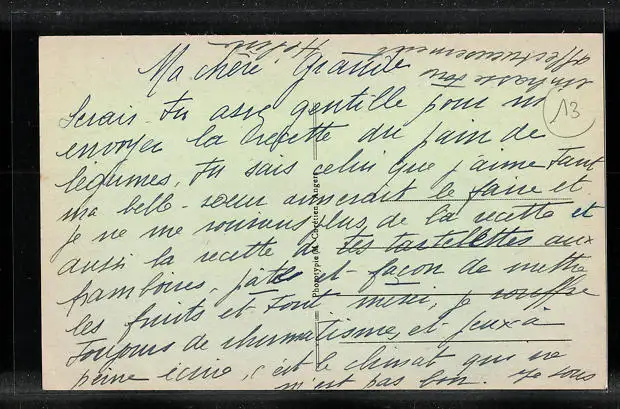 Ma chère Grande
Serais-tu assez gentille pour m'
envoyer la recette du pain de
légumes, tu sais celui que j'aime tant
ma belle-sœur aimerait le faire et
je ne me souviens plus de la recette et
aussi la recette de tes tartelettes aux
framboises, pâte et façon de mettre
les fruits et tout merci, je souffre
toujours de rhumatisme, et peux à
peine écrire, c'est le climat qui ne
m'est pas bon. Je vous
embrasse
affectueusement
13
Phototypie M. Chrétien Angers